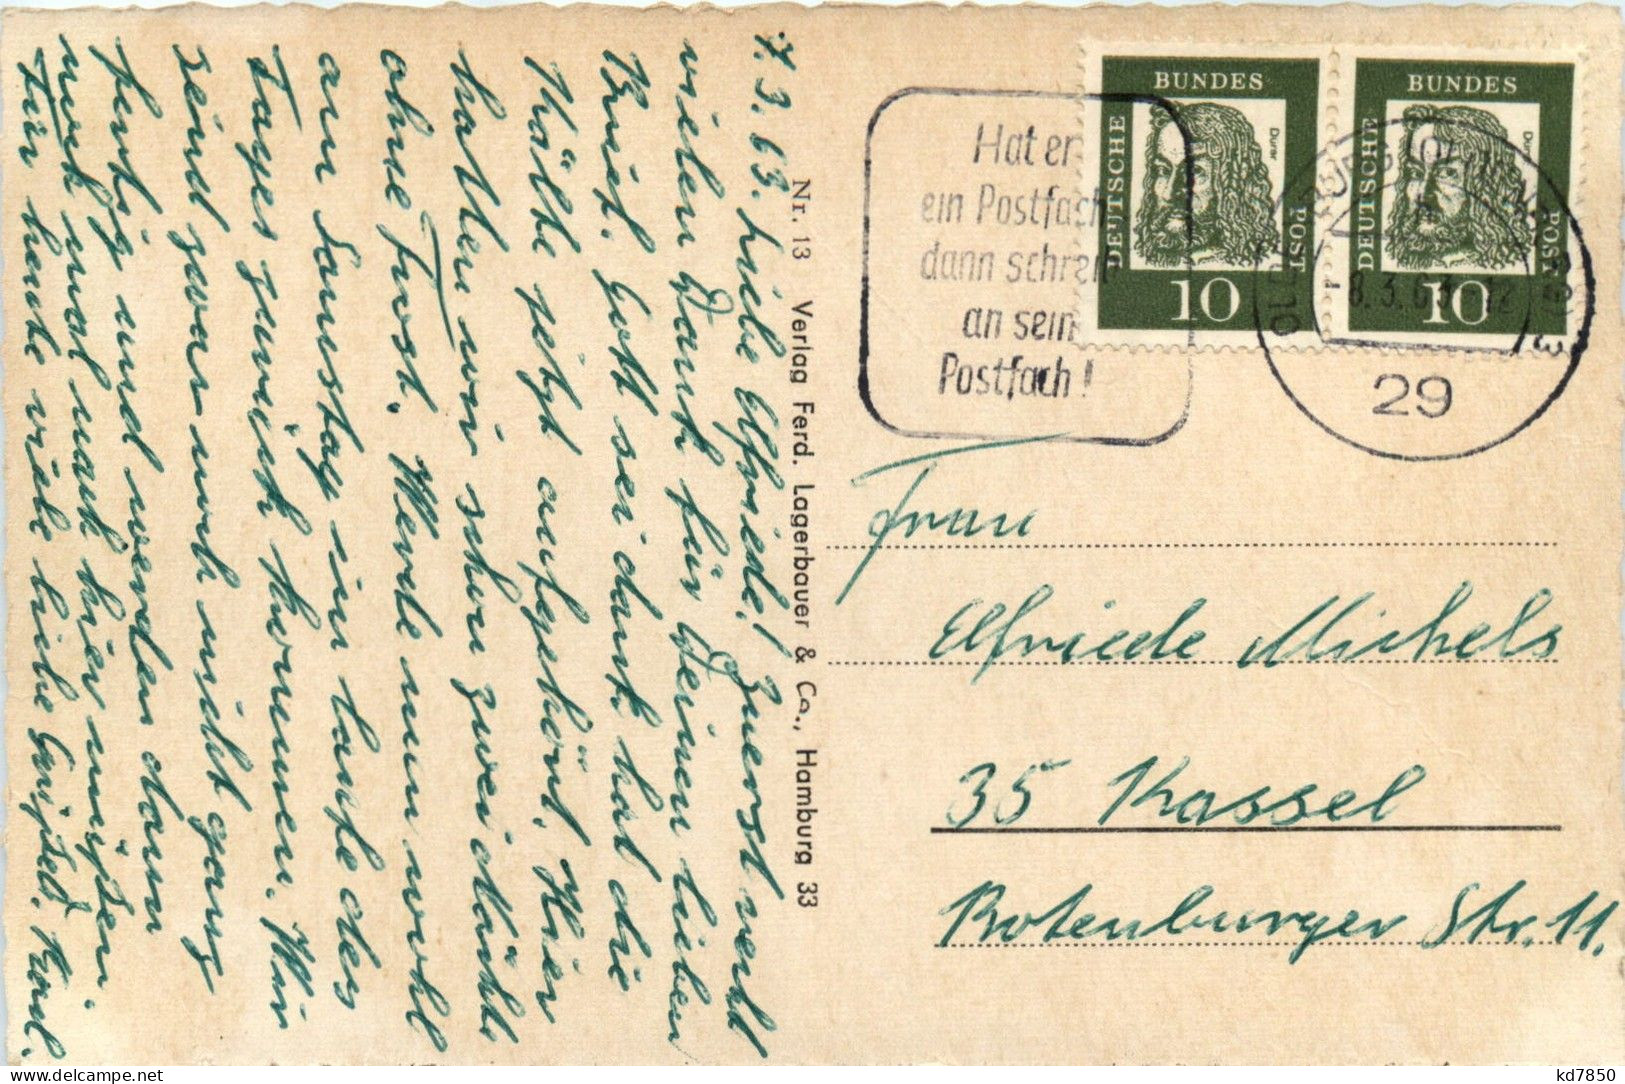 7.3.63. Liebe Elfriede! Zuerst recht
vielen Dank für Deinen lieben
Brief. Gott sei dank hat die
Kälte jetzt aufgehört. Hier
hatten wir schon zwei Nächte
ohne Frost. Werde nun wohl
am Samstag im Laufe des
Tages zurück kommen. Wir
seind zwar noch nicht ganz
fertig und werden dann
noch mal nach hier müssen.
Für heute viele liebe Grüße Karl.
Nr. 13 Verlag Ferd. Lagerbauer & Co., Hamburg 33
Hat er
ein Postfach
dann schreib
an sein
Postfach!
DEUTSCHE BUNDES POST
Dürer
10
DEUTSCHE BUNDES POST
Dürer
10
8.3.63-12
29
Frau
Elfriede Michels
35 Kassel
Rotenburger Str. 11.
kd7850